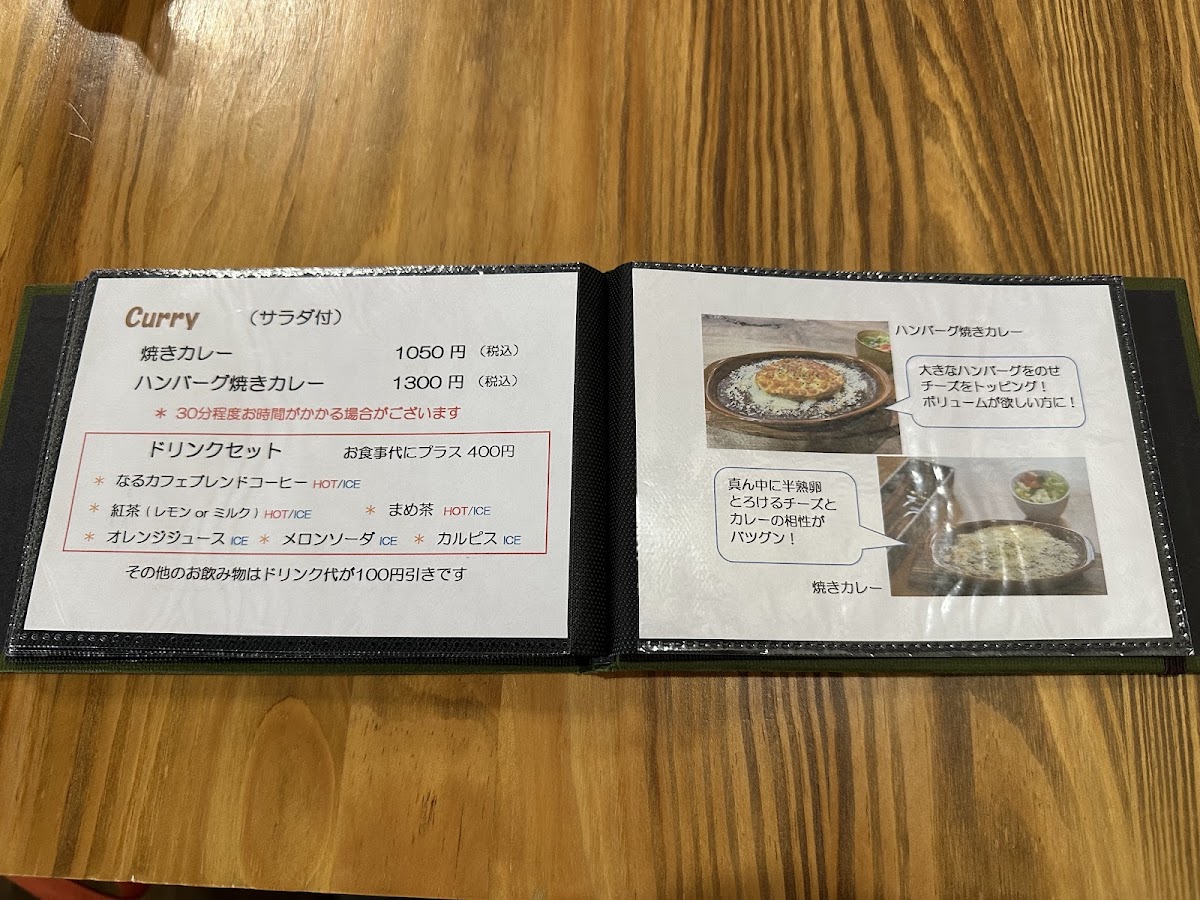 Curry （サラダ付）
焼きカレー 1050 円 （税込）
ハンバーグ焼きカレー 1300 円 （税込）
＊ 30分程度お時間がかかる場合がございます
ドリンクセット お食事代にプラス 400円
＊ なるカフェブレンドコーヒー HOT/ICE
＊ 紅茶 ( レモン or ミルク ) HOT/ICE ＊ まめ茶 HOT/ICE
＊ オレンジジュース ICE ＊ メロンソーダ ICE ＊ カルピス ICE
その他のお飲み物はドリンク代が100円引きです
ハンバーグ焼きカレー
大きなハンバーグをのせ
チーズをトッピング！
ボリュームが欲しい方に！
真ん中に半熟卵
とろけるチーズと
カレーの相性が
バツグン！
焼きカレー